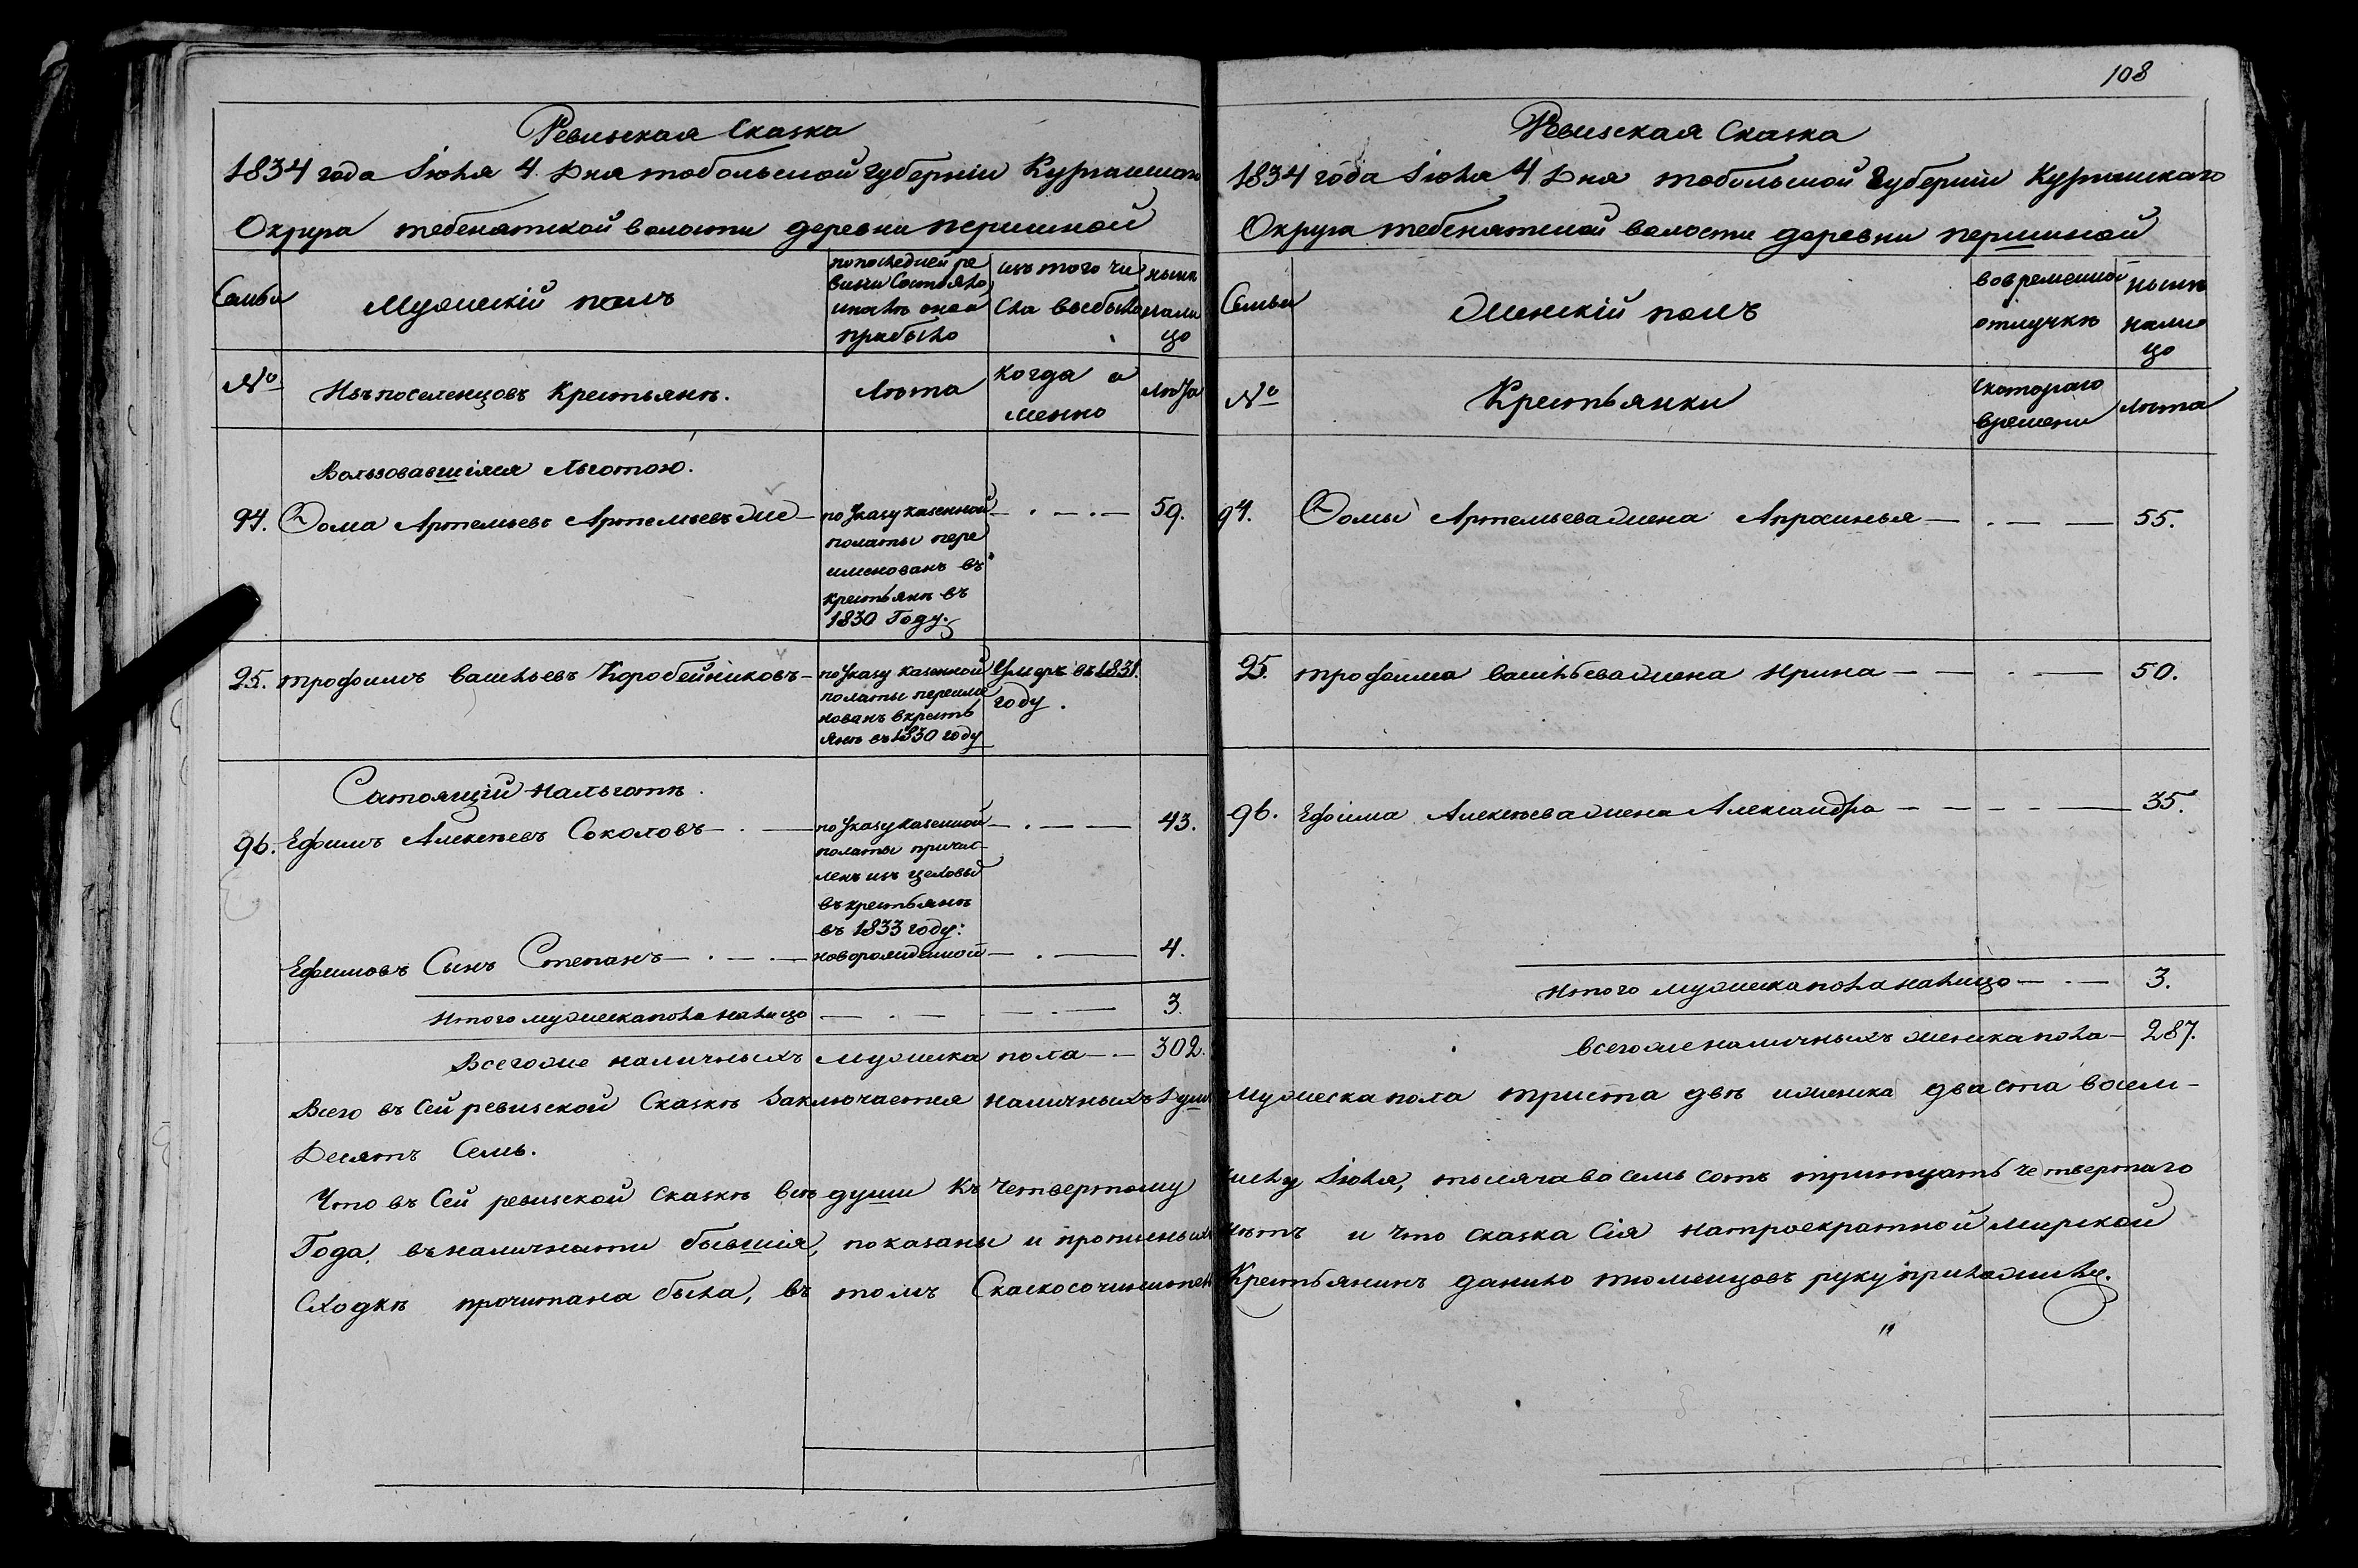 108
Ревизская Сказка
1834 года Іюня 4. Дня тобольской губерніи Курганскаго
Округа тебенятской волости деревни першиной
Семьи
Мужескій полъ
по последней ре
визіи Состояло,
и после оной
прибыло
изъ того чи
сла выбыло
ныне
нали
цо
№
Изъ поселенцовъ Крестьянъ.
Лета
когда и
менно
Лета
Вользовавшіяся льготою.
94. Фома Артемьевъ Артемьевъ же — 59.
по Указу казенной
полаты пере
именованъ въ
крестьяне въ
1830 Году.
95. трофимъ васильевъ Коробейниковъ —
по Указу казенной
полаты переиме
нованъ вкресть
яне въ 1830 году
Умеръ въ 1831.
году.
Сотоящій на льготе.
96. Ефимъ Алексеевъ Соколовъ — 43.
по Указу казенной
полаты причис-
ленъ изъ
въ крестьяне
въ 1833 году:
Ефимовъ Сынъ Степанъ — новорожденной — 4.
Итого мужеска пола на лицо — 3.
Всего же наличныхъ мужеска пола — 302.
Ревизская Сказка
1834 года Іюня 4. Дня тобольской Губерніи Курганскаго
Округа тебенятской волости деревни першиной
Семьи
Женскій полъ
во временной
отлучке
ныне
нали
цо
№
Крестьянки
скотораго
времени
Лета
94. Фомы Артемьева жена Апраксинья — 55.
95. трофима васильева жена Ирина — 50.
96. Ефима Алексеева жена Александра — 35.
Итого мужеска пола на лицо — 3.
всего же наличныхъ женска пола — 287.
Всего въ Сей ревизской Сказке Заключается наличныхъ Душъ мужеска пола триста две и женска двести восем-
Десятъ Семь.
Что въ Сей ревизской сказке все души къ четвертому числу Іюня, тысяча восемь сотъ тритцать четвертаго
Года, въ наличности бывшія, показаны и прописныхъ нетъ и что сказка Сія на троекратной мирской
Сходке прочитана была, въ томъ Скаскосочинитель Крестьянинъ данило тюменцовъ руку приложилъ.